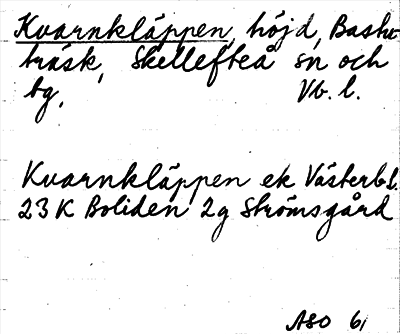 Kvarnkläppen, höjd, Bastu-
träsk, Skellefteå sn och
tg, Vb. l.
Kvarnkläppen ek Västerb. l.
23 K Boliden 2g Strömsgård
ASO 61